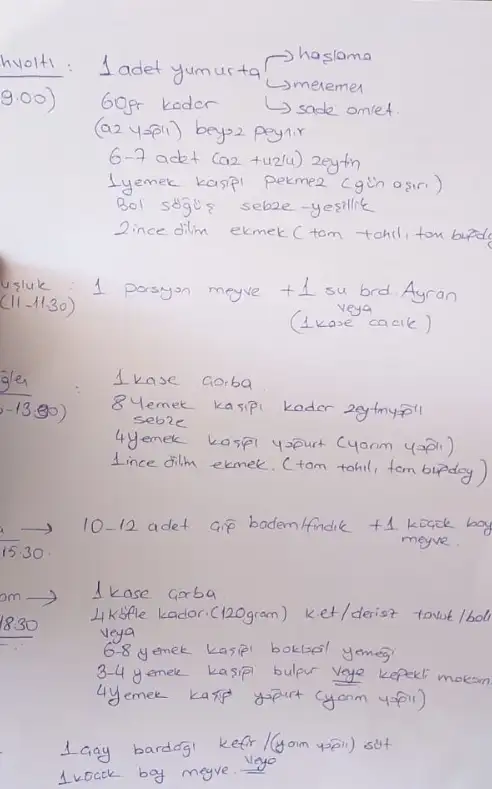 hvoltı : 1 adet yumurta → haşlama
9.00) → menemen
60gr kadar → sade omlet.
(az yağlı) beyaz peynir
6-7 adet (az tuzlu) zeytin
1 yemek kaşığı pekmez (gün aşırı)
Bol söğüş sebze-yeşillik
2 ince dilim ekmek (tam tahıl, tam buğday
uşluk : 1 porsiyon meyve + 1 su brd. Ayran
(11-11.30) veya
(1 kase cacık)
ğlen : 1 kase çorba
-13.30) 8 yemek kaşığı kadar zeytinyağlı
sebze
4 yemek kaşığı yoğurt (yarım yağlı)
1 ince dilim ekmek. (tam tahıl, tam buğday)
a → 10-12 adet çiğ badem/fındık + 1 küçük boy
15.30. meyve.
am → 1 kase çorba
18.30 4 köfte kadar (120gram) k.et/derisiz tavuk/balı
veya
6-8 yemek kaşığı baklagil yemeği
3-4 yemek kaşığı bulgur veya kepekli makarn
4 yemek kaşığı yoğurt (yarım yağlı)
1 çay bardağı kefir / (yarım yağlı) süt
veya
1 küçük boy meyve.